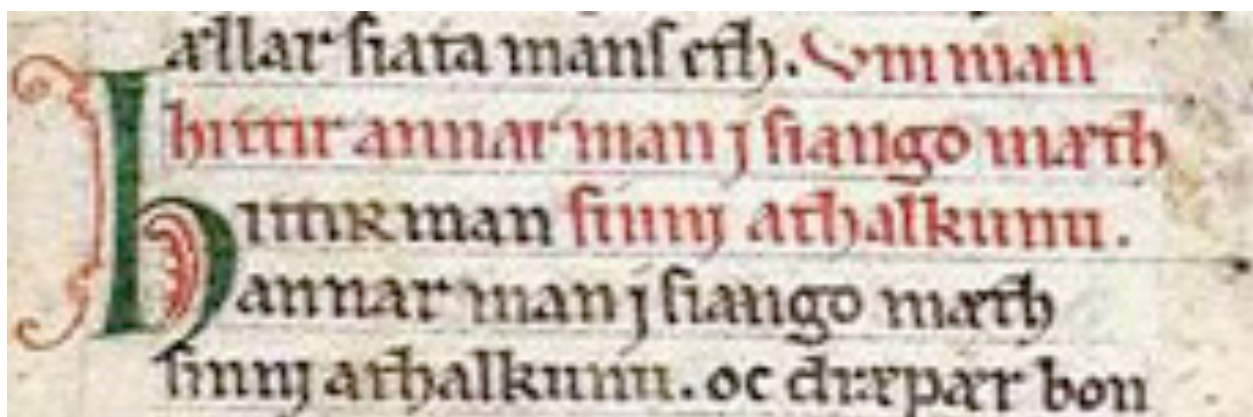 ællar siata mans eth. Um man
hittir annar man j siango mæth
Hittir man sinnj athalkunu.
annar man j siango mæth
sinnj athalkunu. oc dræpær bon